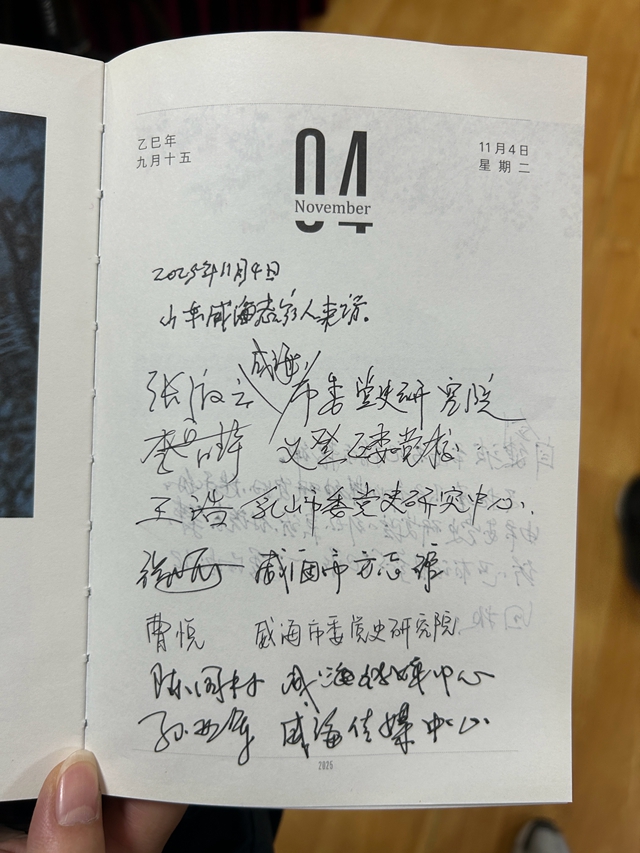 乙巳年
九月十五
04
November
11月4日
星期二
2025年11月4日
山东威海客人来访。
威海
张 市委党史研究院
文登区委党校
王浩 乳山市委党史研究中心.
徐 威海市方志馆
曹悦 威海市委党史研究院
陈国村 威海传媒中心
孙 威海传媒中心
2025